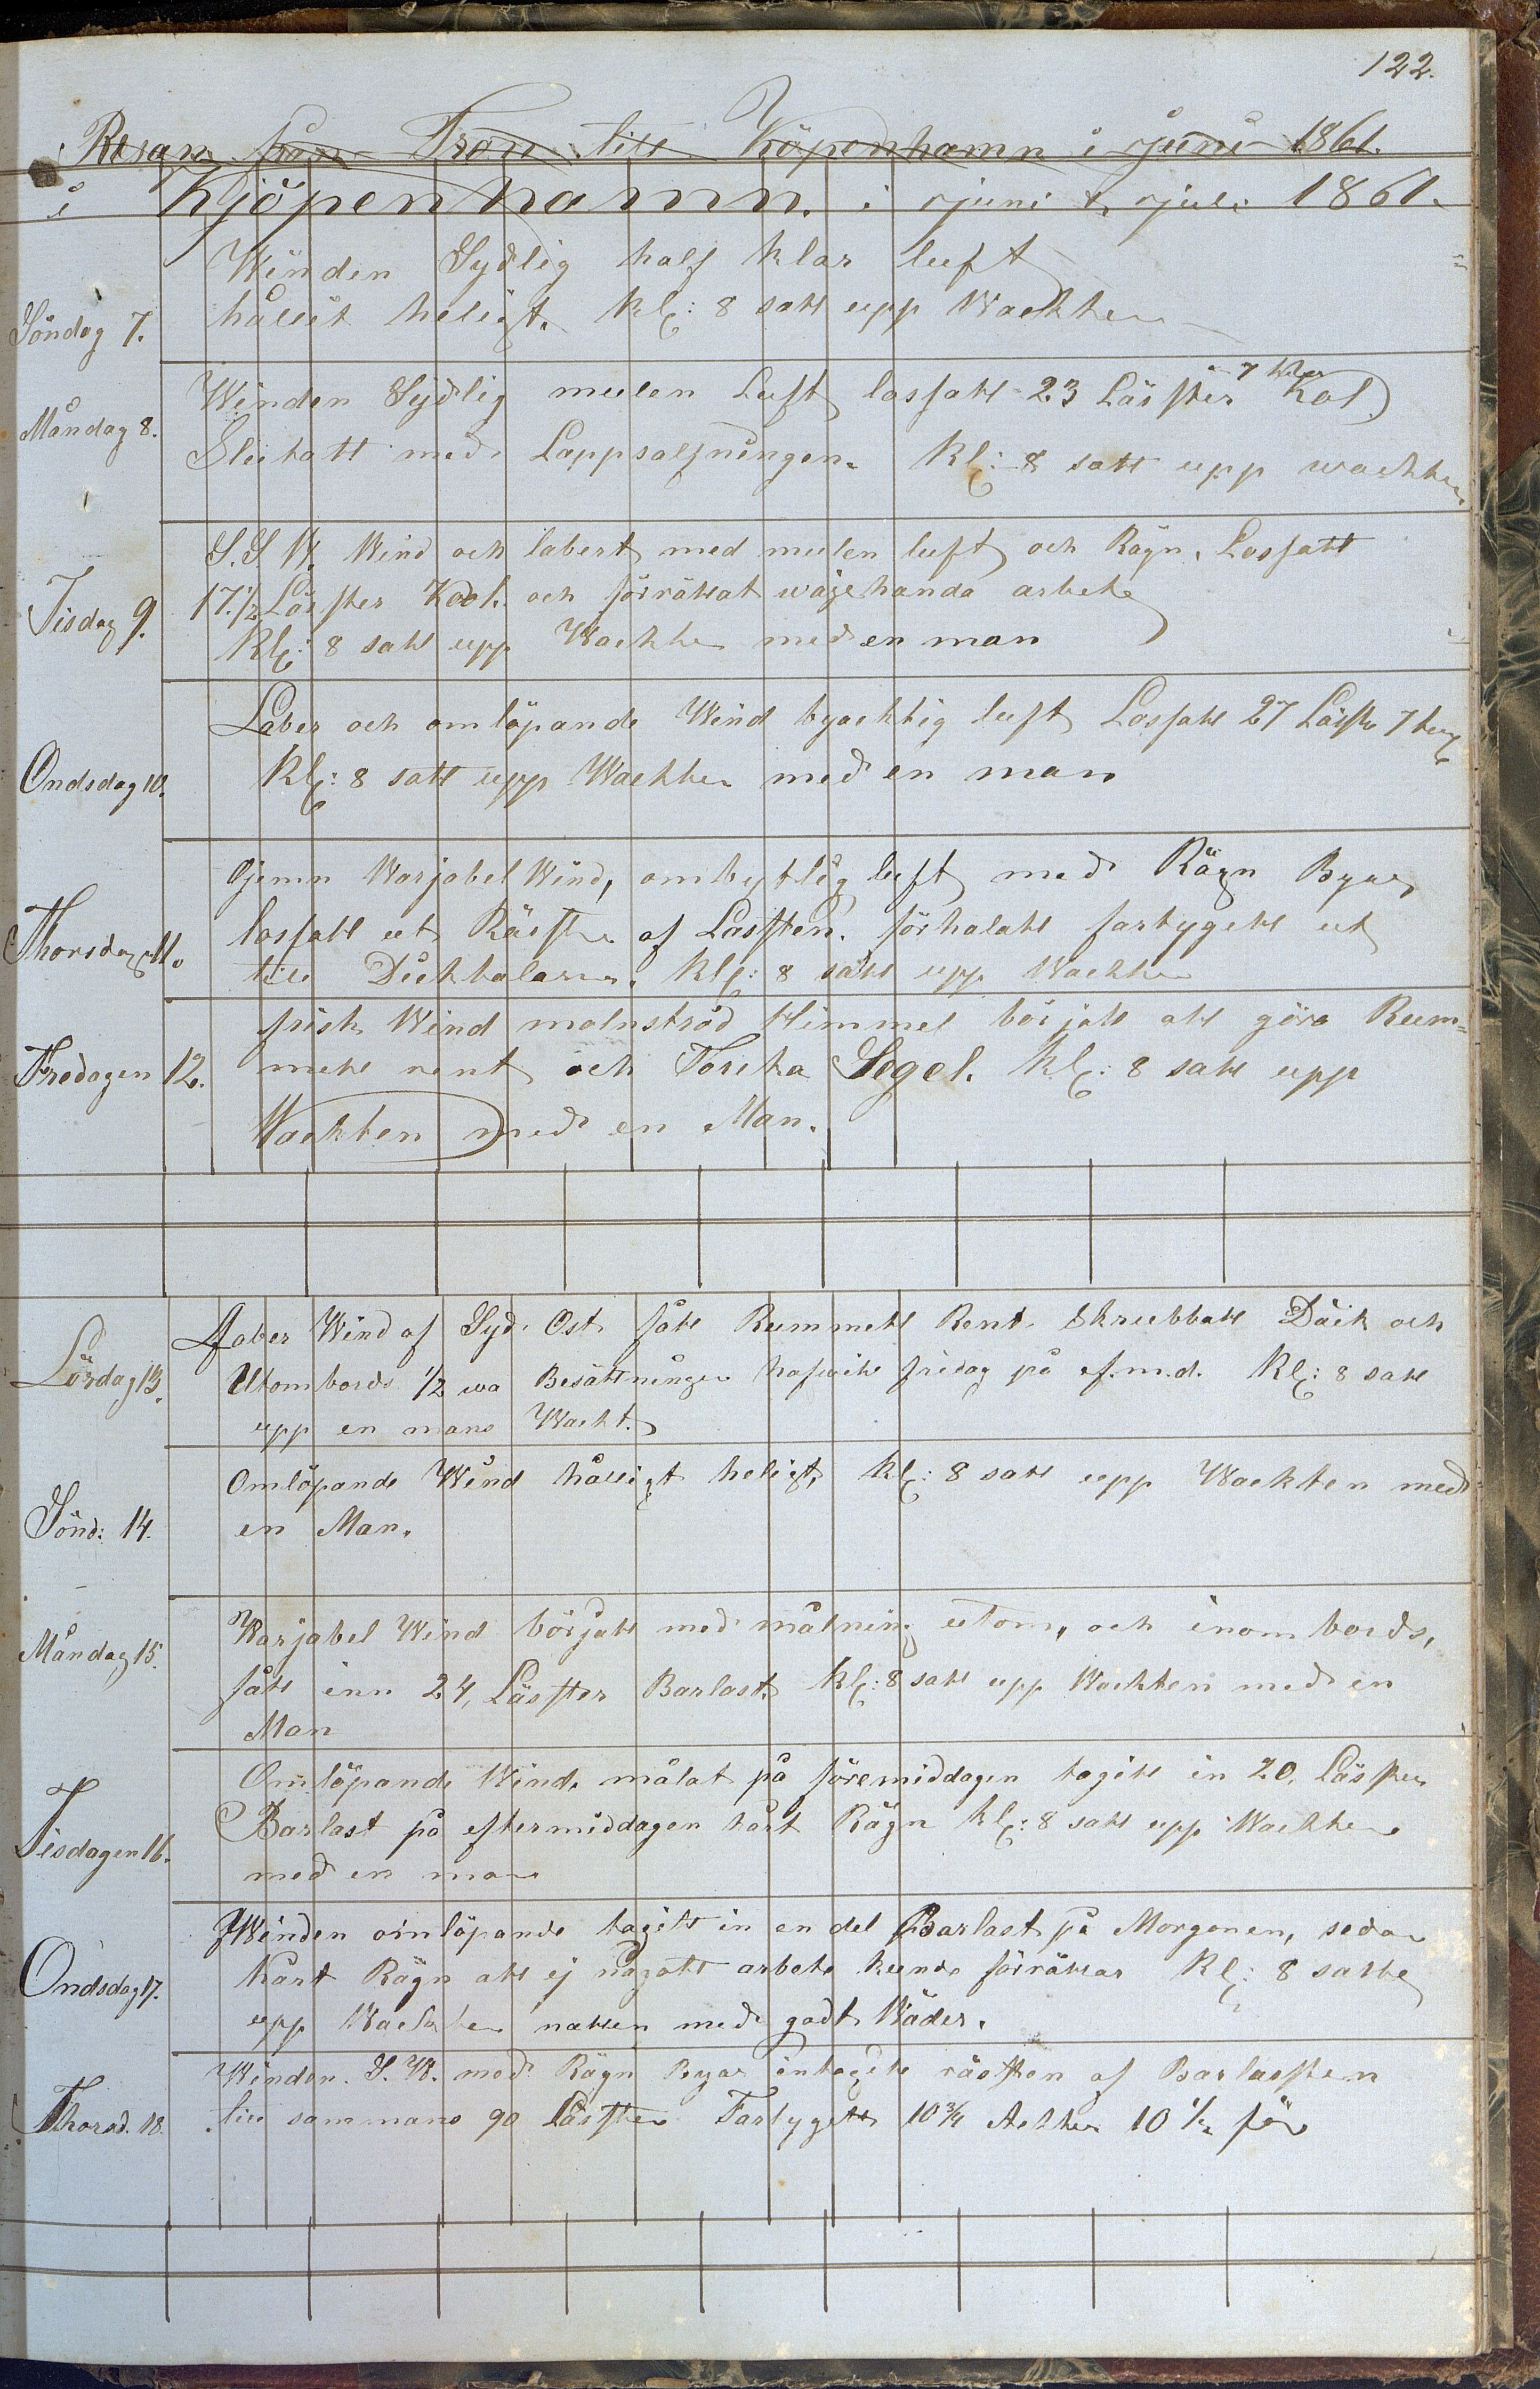 122.
Resan från Tron till Köpenhamn i juni 1861.
i Kjöpenhamn. i juni & juli 1861.
Winden Sydlig half klar luft
Söndag 7. hållit heligt. Kl: 8 satt upp Wackten
Winden Sydlig mulen Luft lossatt 23 Läster 7 Kol
Måndag 8. Slutatt med Lappsalfningen. Kl: 8 satt upp wackten
S.S.W. Wind och labert med mulen luft och Rägn. Lossatt
Tisdag 9. 17.1/2 Läster Kool. och förrättat warjehanda arbete
Kl: 8 satt upp Wackten med en man
Laber och omlöpande Wind byacktig luft Lossatt 27 Läster 7
Ondsdag 10. Kl: 8 satt upp Wackten med en man
Ojemn Warjabel Wind, ombytlig luft med Rägn Byar,
Thorsdag 11. lossatt ut Räesten af Lassten. förhalatt fartygett ut
till Duckdalarne. Kl: 8 satt upp Wackten
frisk Wind molnströd Himmel börjatt att göra Rum=
Fredagen 12. mett rent och Torcka Segel. Kl: 8 satt upp
Wackten med en Man.
Laber Wind af Syd. Ost. fått Rummett Rent. Skrubbatt Däck och
Lördag 13. Utombords 1/2 wa Besättningen hafwitt fridag på ef.m.d. Kl: 8 satt
upp en mans Wackt.
Omlöpande Wind hålligt heligt, Kl: 8 satt upp Wackten med
Sönd: 14. en Man.
Warjabel Wind börjatt med målning utom, och inombords,
Måndag 15. fått inn 24, Läster Barlast. Kl: 8 satt upp Wackten med en
Man
Omlöpande Wind, målat på föremiddagen tagitt in 20, Läster
Tisdagen 16. Barlast på eftermiddagen hårt Rägn Kl: 8 satt upp Wackten
med en man
Winden omlöpande tagitt in en del Barlast på Morgonen, sedan
Ondsdag 17. hårt Rägn att ej någott arbete kunde förrättas Kl: 8 satte
upp Wackten natten med godt Wäder.
Winden. S.W. med Rägn Byar intagitt rästen af Barlassten
Thorsd. 18. till sammans 90 Läster Fartygett 10 3/4 Ackter 10 1/2 för